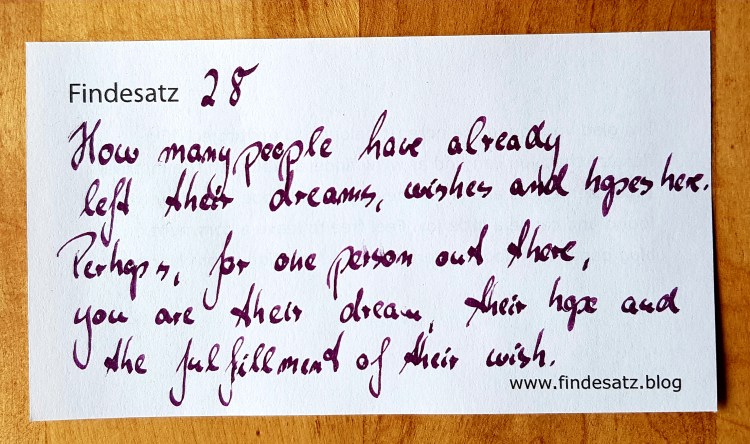 Findesatz 28
How many people have already
left their dreams, wishes and hopes here.
Perhaps, for one person out there,
you are their dream, their hope and
the fulfillment of their wish.
www.findesatz.blog